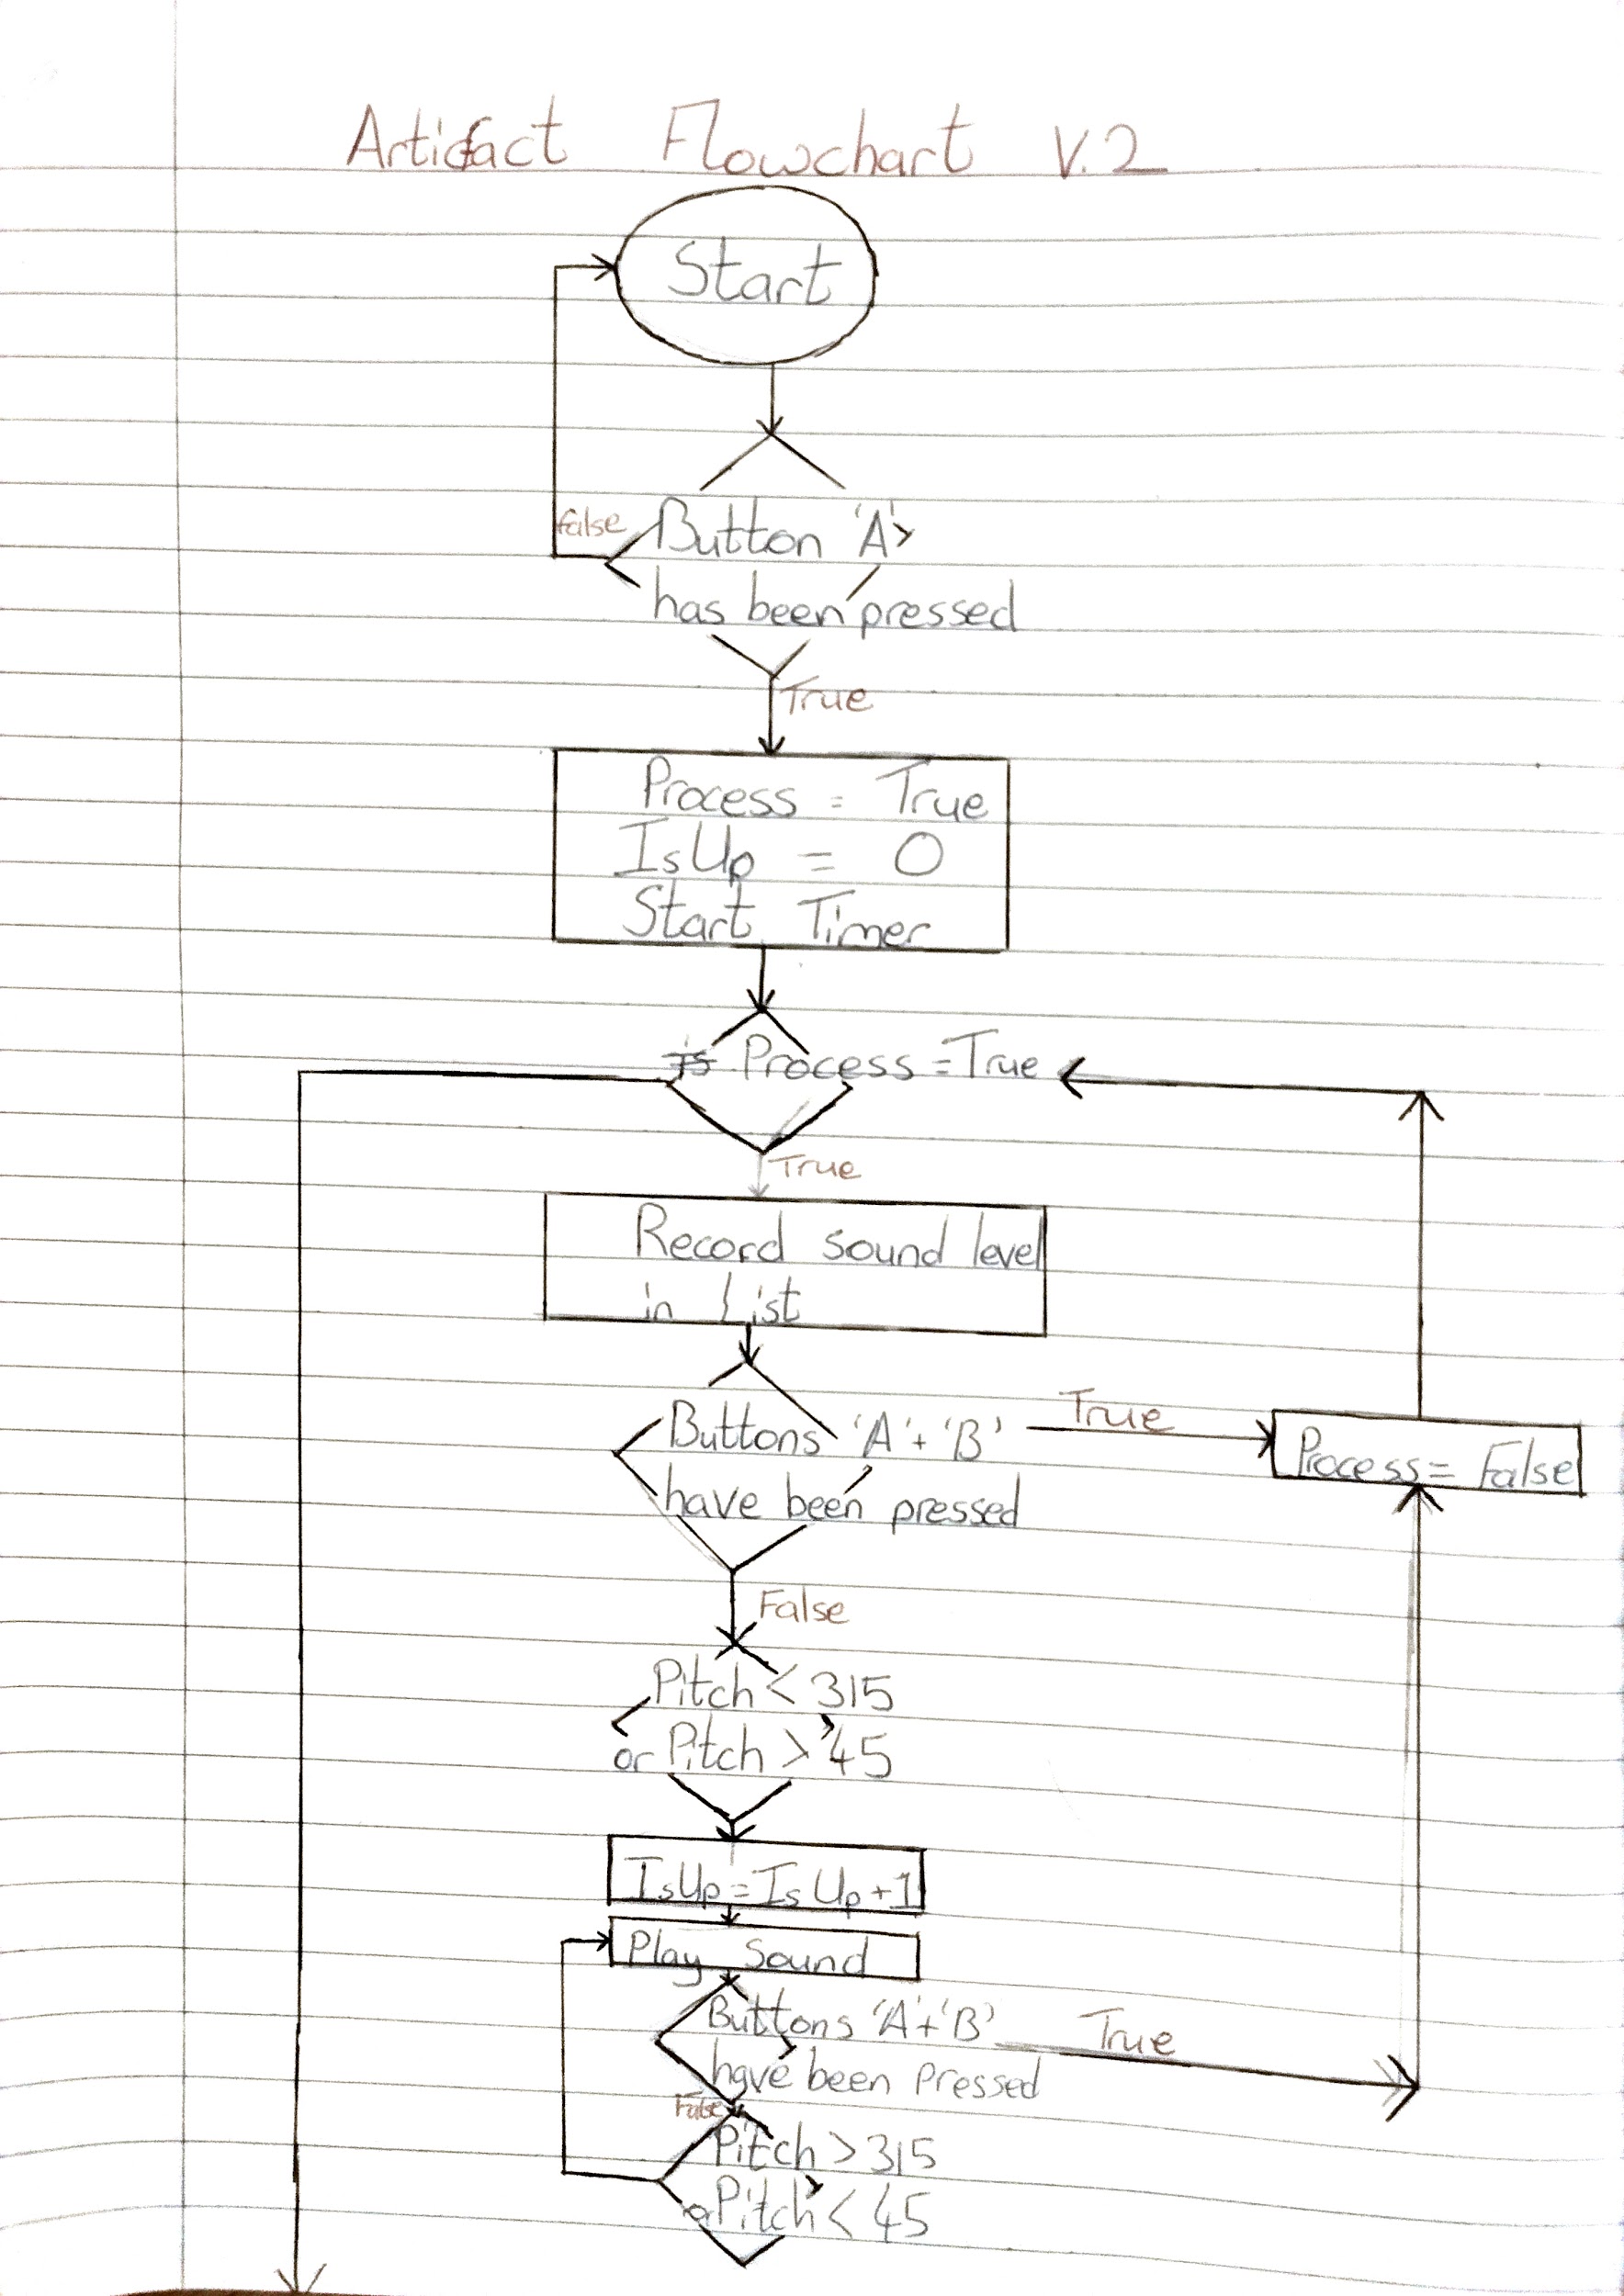 Artifact Flowchart V.2
Start
False
Button 'A'
has been pressed
True
Process = True
IsUp = 0
Start Timer
is Process = True
True
Record sound level
in List
Buttons 'A' + 'B'
True
Process = False
have been pressed
False
Pitch < 315
or Pitch > 45
IsUp = IsUp + 1
Play Sound
Buttons 'A' + 'B'
True
have been Pressed
False
Pitch > 315
or Pitch < 45